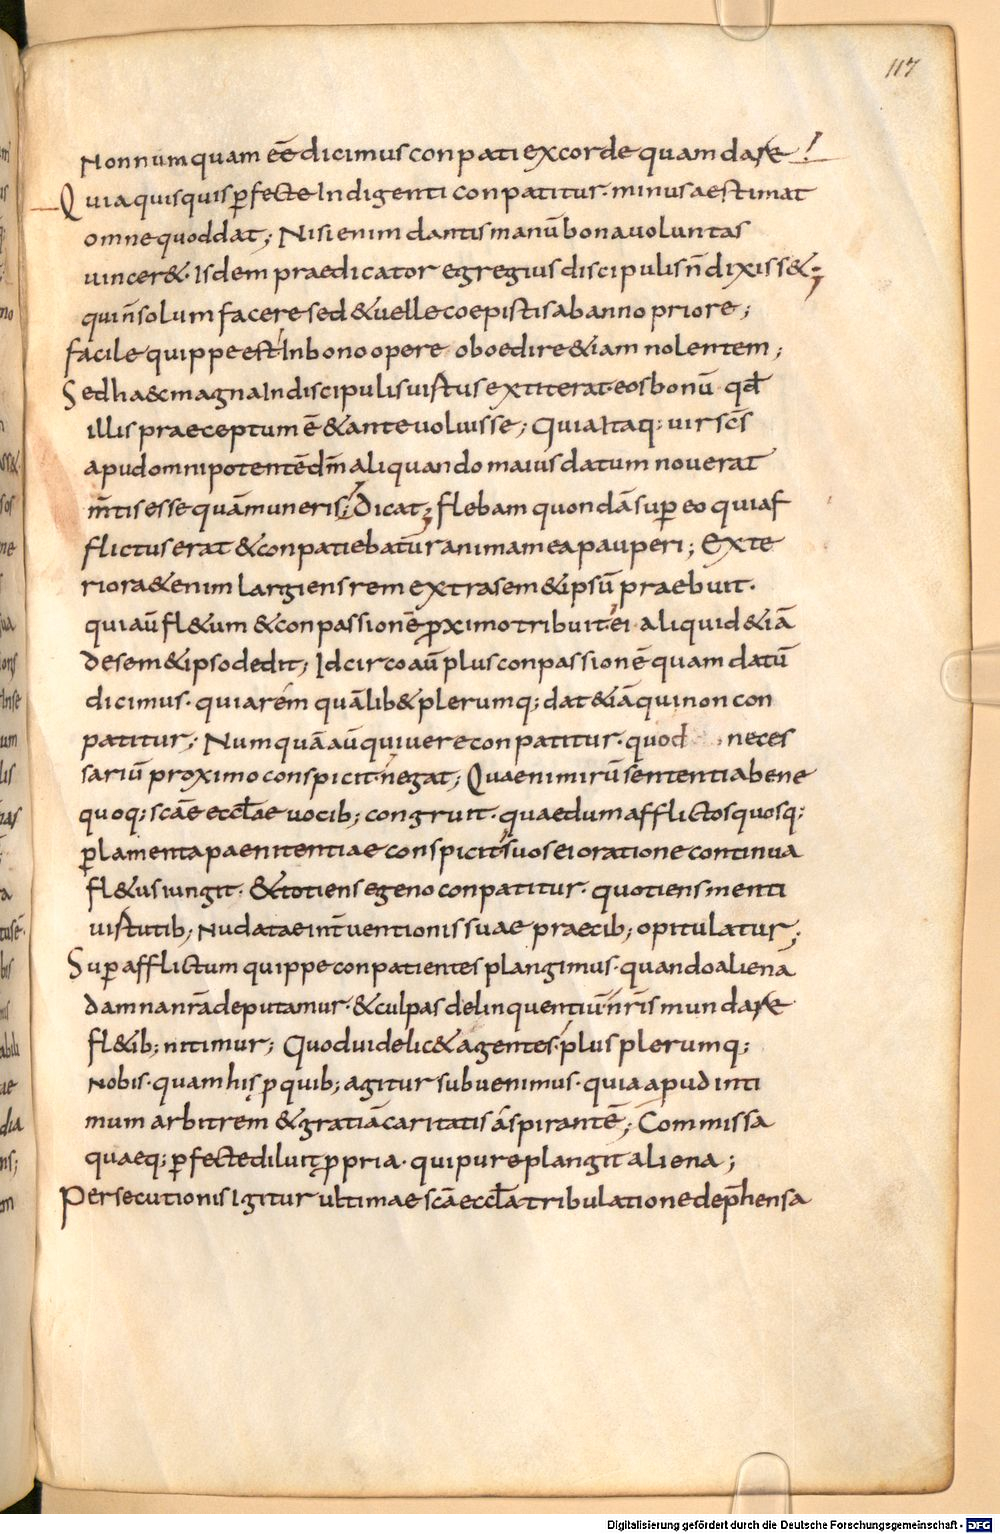 117
Non numquam eē dicimus conpati ex corde quam dare!
Quia quisquis p̱fecte Indigenti conpatitur· minus aestimat
omne quod dat; Nisi enim dantis manū bona voluntas
vincer&· Isdem praedicator egregius discipulis n̄ dixiss&;
qui n̄ solum facere sed &uelle coepistis ab anno priore;
facile quippe est In bono opere oboedire &iam nolentem;
Sed haec magna In discipulis uirtus extiterat eos bonū qd̄
illis praeceptum ē & ante uoluisse; Quia Itaq; uir sc̄s
apud omnipotentē dm̄ aliquando maius datum nouerat
m̄tis esse quā muneris; Dicat; flebam quondā sup̱ eo qui af
flictus erat & conpatiebatur anima mea pauperi; Exte
riora &enim largiens rem extra sem&ipsū praebuit·
qui aū fl&um & conpassionē p̱ximo tribuit ei aliquid &iā
de sem&ipso dedit; Idcirco aū plus conpassionē quam datū
dicimus· quia rem quālib& plerumq; dat &iā qui non con
patitur; Numquā aū qui uere conpatitur· quod neces
sariū proximo conspicit negat; Quae nimirū sententia bene
quoq; scāe eccl̄ae uocib; congruit· quae dum afflictos quosq;
p̱ lamenta paenitentiae conspicit suos ei oratione continua
fl&us iungit· & totiens egeno conpatitur· quotiens menti
uirtutib; nudatae int̄uentionis suae praecib; opitulatur;
Sup̱ afflictum quippe conpatientes plangimus· quando aliena
damna nr̄a deputamus· & culpas delinquentiū nr̄is mundare
fl&ib; nitimur; Quod uidelic& agentes· plus plerumq;
nobis· quam his p̱ quib; agitur subuenimus· quia apud inti
mum arbitrem & gratiā caritatis aspirantē; Commissa
quaeq; p̱fecte diluit p̱pria· qui pure plangit aliena;
Persecutionis Igitur ultimae scā eccl̄a tribulatione dep̄hensa
Digitalisierung gefördert durch die Deutsche Forschungsgemeinschaft - DFG